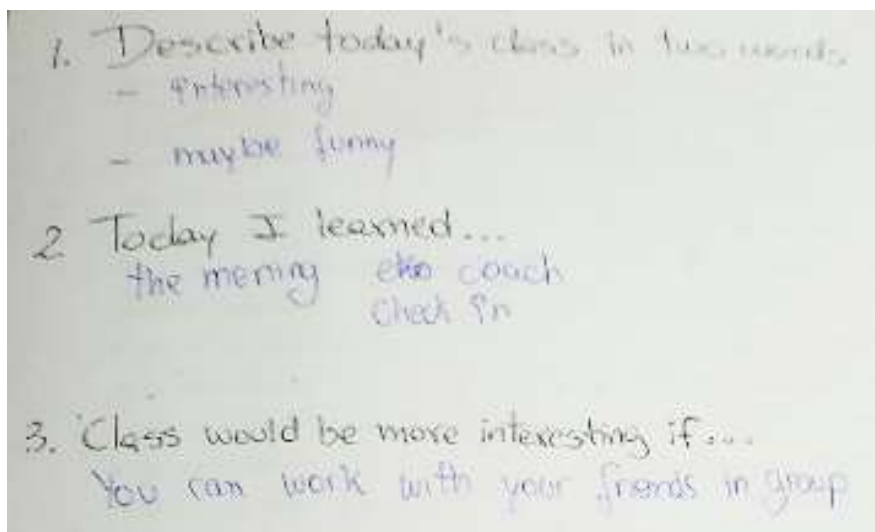 1. Describe today's class in two words
- interesting
- maybe funny
2 Today I learned...
the mening coach
Check in
3. Class would be more interesting if...
You can work with your friends in group